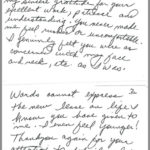 my sincere gratitude for your
excellent work, patience and
understanding. You never made
me feel rushed or uncomfortable
I felt you were as
concerned with my face
and neck, etc as I was.
Words cannot express
the new lease on life I
know you have given to
me. I even feel younger!
Thank you again for your